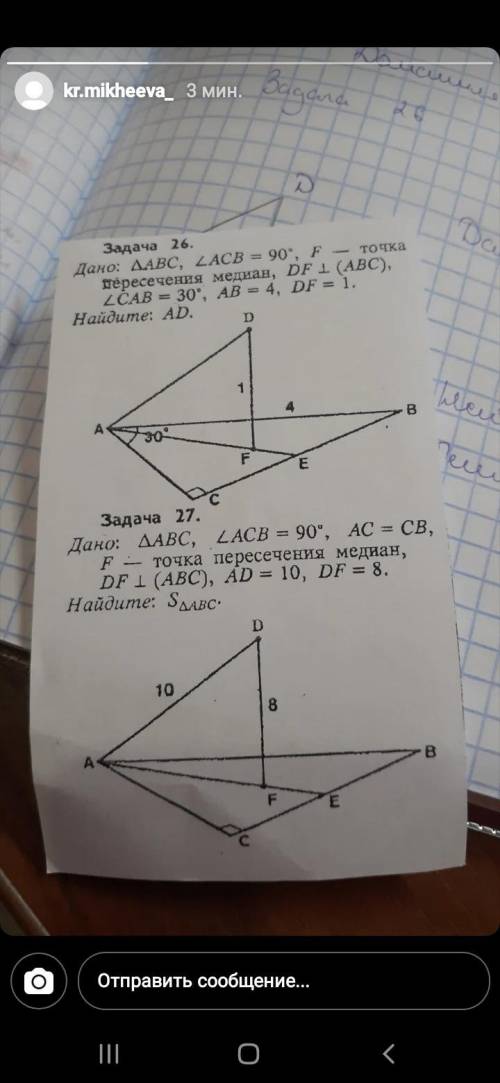 kr.mikheeva_ 3 мин.
Задача 26
D
Задача 26.
Дано: △ABC, ∠ACB = 90°, F — точка
пересечения медиан, DF ⊥ (ABC),
∠CAB = 30°, AB = 4, DF = 1.
Найдите: AD.
D
1
4
B
A
30°
F
E
C
Задача 27.
Дано: △ABC, ∠ACB = 90°, AC = CB,
F — точка пересечения медиан,
DF ⊥ (ABC), AD = 10, DF = 8.
Найдите: S△ABC.
D
10
8
B
A
F
E
C
Отправить сообщение...